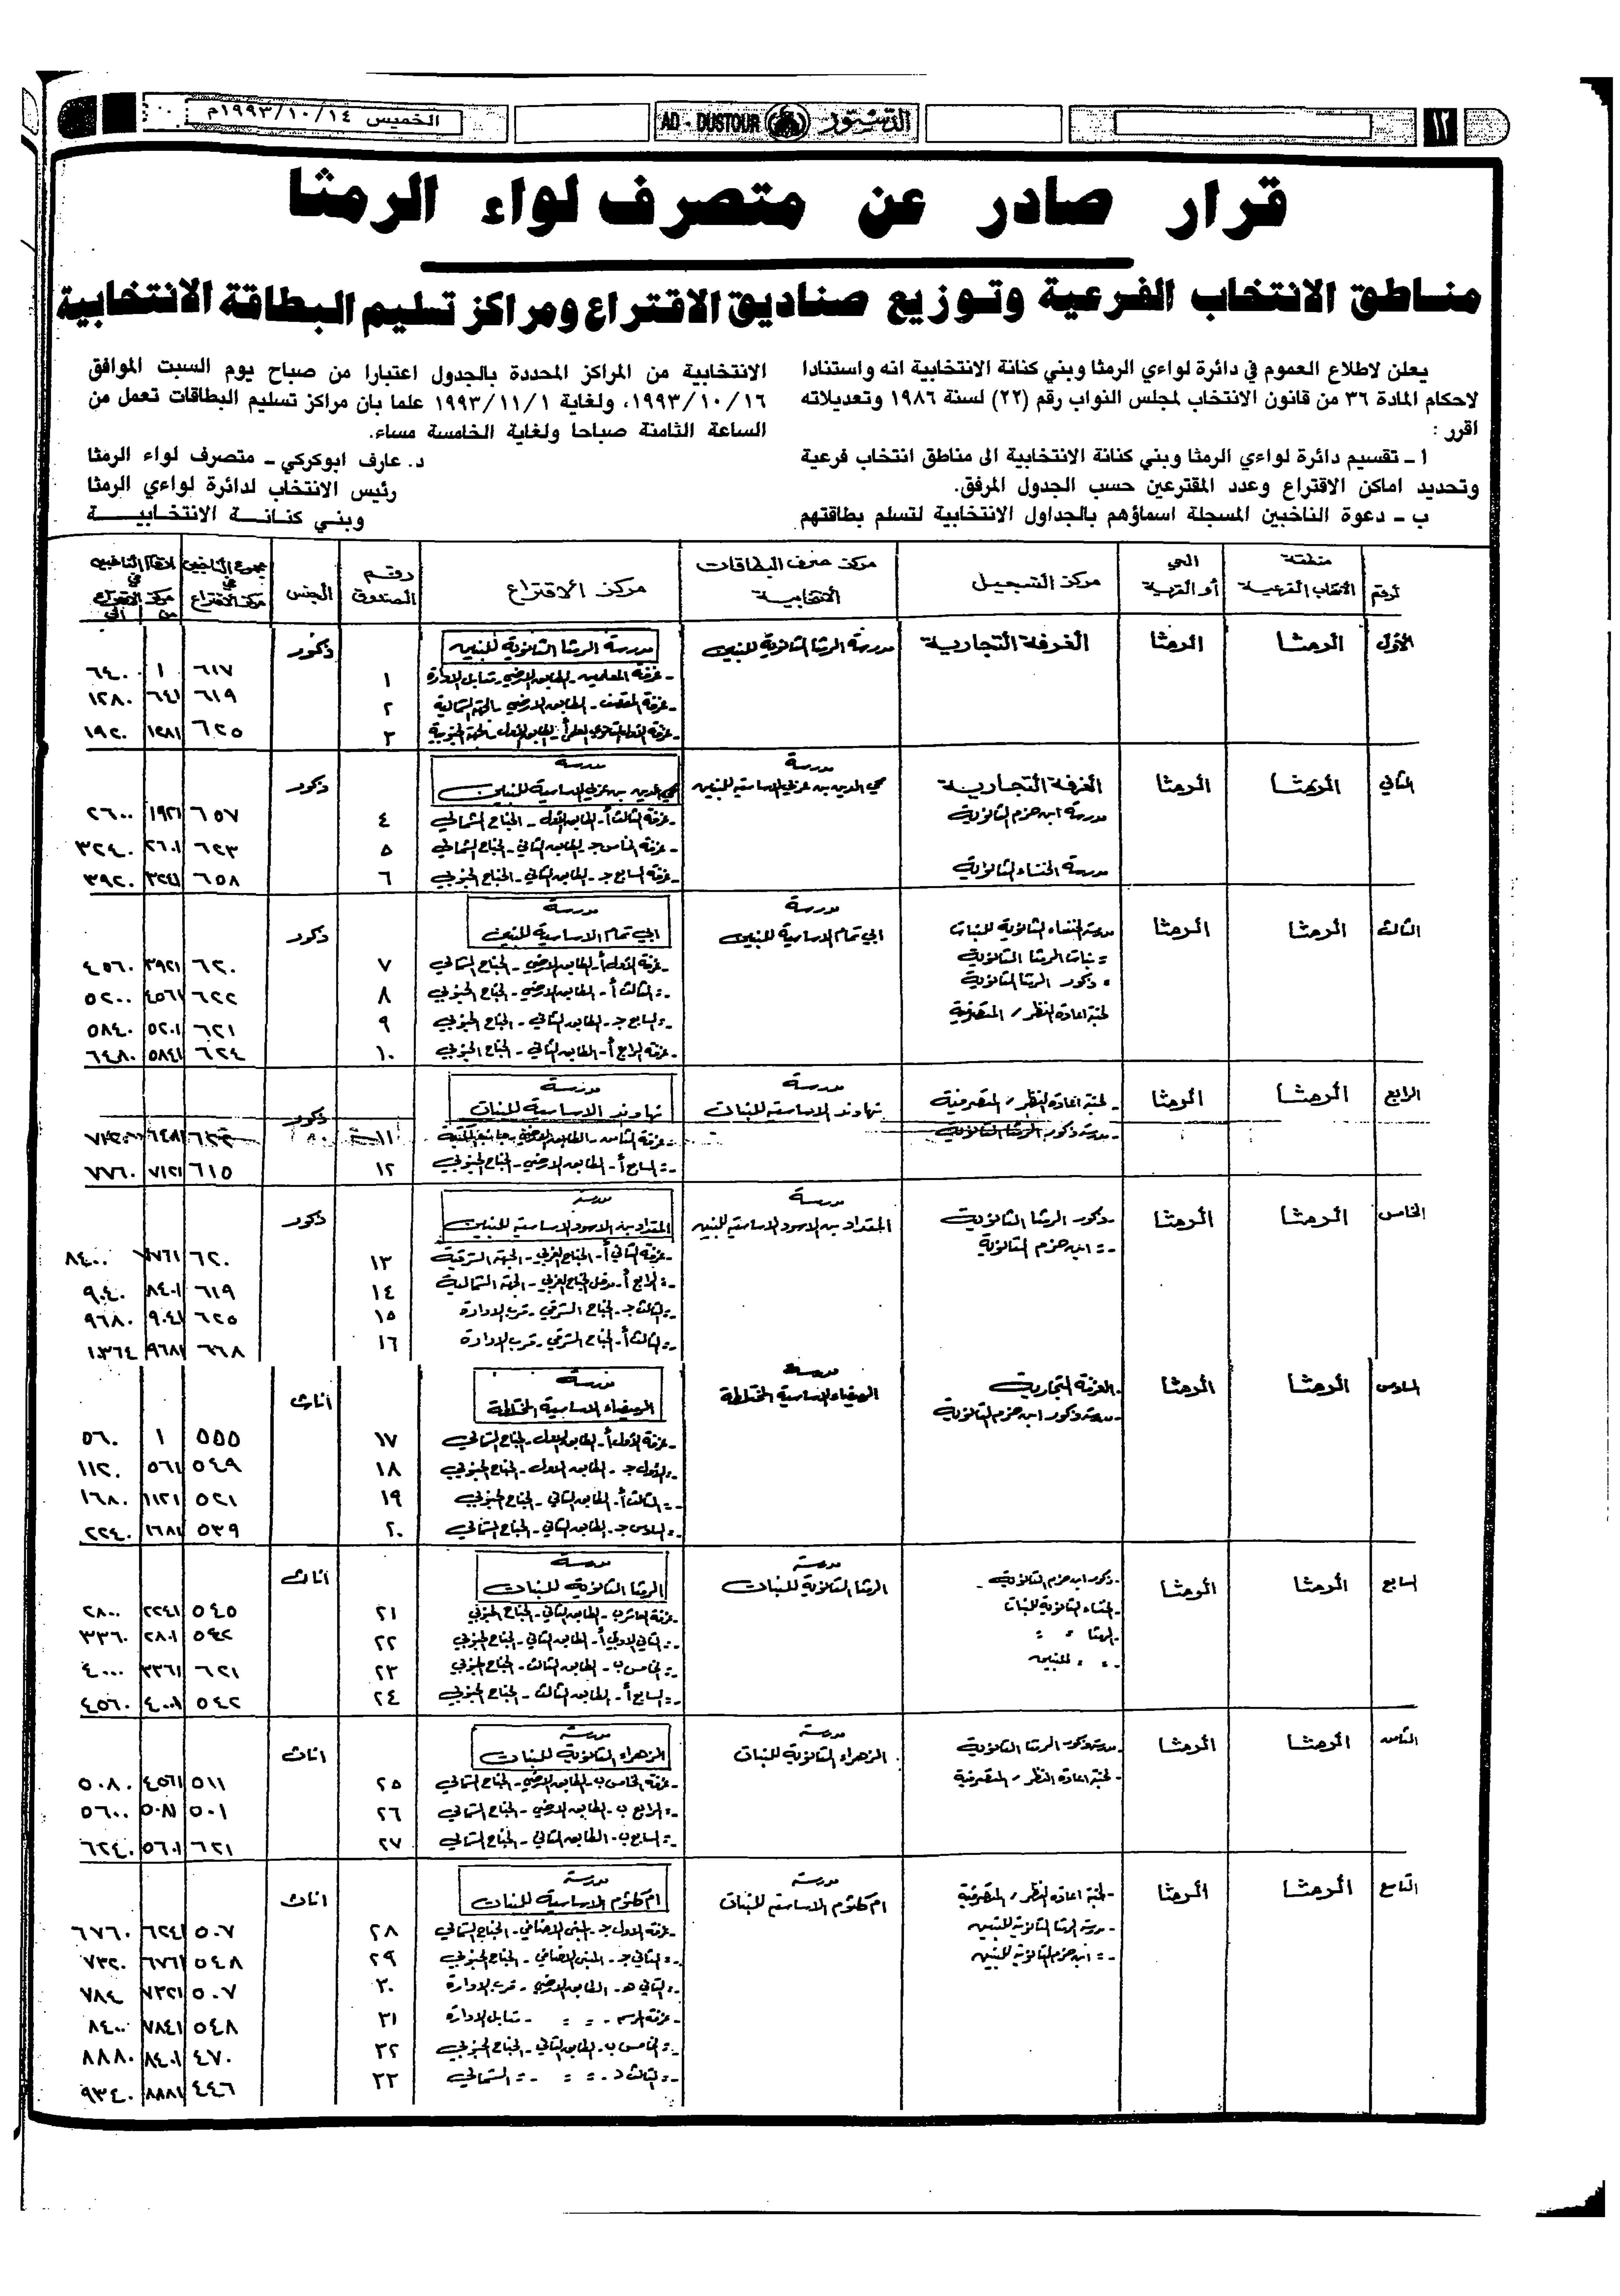 ١٢
الدستور AD - DUSTOUR
الخميس ١٩٩٣/١٠/١٤م
قرار صادر عن متصرف لواء الرمثا
مناطق الانتخاب الفرعية وتوزيع صناديق الاقتراع ومراكز تسليم البطاقة الانتخابية
يعلن لاطلاع العموم في دائرة لواءي الرمثا وبني كنانة الانتخابية انه واستنادا
لاحكام المادة ٣٦ من قانون الانتخاب لمجلس النواب رقم (٢٢) لسنة ١٩٨٦ وتعديلاته
اقرر :
أ ـ تقسيم دائرة لواءي الرمثا وبني كنانة الانتخابية الى مناطق انتخاب فرعية
وتحديد اماكن الاقتراع وعدد المقترعين حسب الجدول المرفق.
ب ـ دعوة الناخبين المسجلة اسماؤهم بالجداول الانتخابية لتسلم بطاقتهم
الانتخابية من المراكز المحددة بالجدول اعتبارا من صباح يوم السبت الموافق
١٩٩٣/١٠/١٦، ولغاية ١٩٩٣/١١/١ علما بان مراكز تسليم البطاقات تعمل من
الساعة الثامنة صباحا ولغاية الخامسة مساء.
د. عارف ابوكركي ـ متصرف لواء الرمثا
رئيس الانتخاب لدائرة لواءي الرمثا
وبني كنانة الانتخابية
الرقم منطقة الانتخاب الفرعية الحي أو القرية مركز التسجيل مركز صرف البطاقات الانتخابية مركز الاقتراع رقم الصندوق الجنس مجموع الناخبين في مركز الاقتراع ارقام الناخبين في مركز الاقتراع من الى
الأول الرمثا الرمثا الغرفة التجارية مدرسة الرمثا الثانوية للبنين مدرسة الرمثا الثانوية للبنين ذكور
- غرفة المعلمين - الطابق الارضي - مقابل الادارة ١ ٦١٧ ١ ٦٤٠
- غرفة المقصف - الطابق الارضي - الجهة الشمالية ٢ ٦١٩ ٦٤١ ١٢٨٠
٣ ٦٢٥ ١٢٨١ ١٩٢٠
الثاني الرمثا الرمثا الغرفة التجارية مدرسة محي الدين بن عربي الاساسية للبنين مدرسة محي الدين بن عربي الاساسية للبنين ذكور
مدرسة ابن حزم الثانوية - غرفة الثالث أ - الطابق الأول - الجناح الشمالي ٤ ٦٥٧ ١٩٢١ ٢٦٠٠
- غرفة الخامس ج - الطابق الثاني - الجناح الشمالي ٥ ٦٢٣ ٢٦٠١ ٣٢٤٠
مدرسة الخنساء الثانوية - غرفة السابع ج - الطابق الثاني - الجناح الجنوبي ٦ ٦٥٨ ٣٢٤١ ٣٩٢٠
الثالث الرمثا الرمثا مدرسة الخنساء الثانوية للبنات مدرسة ابي تمام الاساسية للبنين مدرسة ابي تمام الاساسية للبنين ذكور
= بنات الرمثا الثانوية - غرفة الأول أ - الطابق الارضي - الجناح الشمالي ٧ ٦٢٠ ٣٩٢١ ٤٥٦٠
= ذكور الرمثا الثانوية - = الثالث أ - الطابق الارضي - الجناح الجنوبي ٨ ٦٢٢ ٤٥٦١ ٥٢٠٠
لجنة اعادة النظر / المتصرفية - = السابع ج - الطابق الثاني - الجناح الجنوبي ٩ ٦٢١ ٥٢٠١ ٥٨٤٠
- غرفة الرابع أ - الطابق الثاني - الجناح الجنوبي ١٠ ٦٢٤ ٥٨٤١ ٦٤٨٠
الرابع الرمثا الرمثا - لجنة اعادة النظر / المتصرفية مدرسة نهاوند الاساسية للبنات مدرسة نهاوند الاساسية للبنات ذكور
- مدرسة ذكور الرمثا الثانوية - غرفة الثامن - الطابق الارضي - ١١ ٦٢٢ ٦٤٨١
- = السابع أ - الطابق الارضي - الجناح الجنوبي ١٢ ٦١٥ ٧١٢١ ٧٧٦٠
الخامس الرمثا الرمثا - ذكور الرمثا الثانوية مدرسة المقداد بن الاسود الاساسية للبنين مدرسة المقداد بن الاسود الاساسية للبنين ذكور
- = ابن حزم الثانوية - غرفة الثاني أ - الجناح الغربي - الجهة الشرقية ١٣ ٦٢٠ ٧٧٦١ ٨٤٠٠
- = الرابع أ - مدخل الجناح الغربي - الجهة الشمالية ١٤ ٦١٩ ٨٤٠١ ٩٠٤٠
- = الثالث ج - الجناح الشرقي - قرب الادارة ١٥ ٦٢٥ ٩٠٤١ ٩٦٨٠
- = الثالث أ - الجناح الشرقي - قرب الادارة ١٦ ٦٦٨ ٩٦٨١ ١٠٣٦٤
السادس الرمثا الرمثا - الغرفة التجارية مدرسة البيضاء الاساسية المختلطة مدرسة البيضاء الاساسية المختلطة أناث
- مدرسة ذكور ابن حزم الثانوية - غرفة الأول أ - الطابق الاول - الجناح الشمالي ١٧ ٥٥٥ ١ ٥٦٠
- = الأول ج - الطابق الاول - الجناح الجنوبي ١٨ ٥٤٩ ٥٦١ ١١٢٠
- = الثالث أ - الطابق الثاني - الجناح الجنوبي ١٩ ٥٢١ ١١٢١ ١٦٨٠
- = السادس ج - الطابق الثاني - الجناح الشمالي ٢٠ ٥٣٩ ١٦٨١ ٢٢٤٠
السابع الرمثا الرمثا - ذكور ابن حزم الثانوية مدرسة الرمثا الثانوية للبنات مدرسة الرمثا الثانوية للبنات أناث
- الخنساء الثانوية للبنات - غرفة العاشر ب - الطابق الثاني - الجناح الجنوبي ٢١ ٥٤٥ ٢٢٤١ ٢٨٠٠
- الرمثا = = - = الثاني الادبي أ - الطابق الثاني - الجناح الجنوبي ٢٢ ٥٤٢ ٢٨٠١ ٣٣٦٠
- = = للبنين - = الخامس ب - الطابق الثالث - الجناح الجنوبي ٢٣ ٦٢١ ٣٣٦١ ٤٠٠٠
- = السابع أ - الطابق الثالث - الجناح الجنوبي ٢٤ ٥٤٢ ٤٠٠١ ٤٥٦٠
الثامن الرمثا الرمثا - مدرسة ذكور الرمثا الثانوية مدرسة الزهراء الثانوية للبنات مدرسة الزهراء الثانوية للبنات اناث
- لجنة اعادة النظر / المتصرفية - غرفة الخامس ب - الطابق الارضي - الجناح الشمالي ٢٥ ٥١١ ٤٥٦١ ٥٠٨٠
- = الرابع ب - الطابق الارضي - الجناح الشمالي ٢٦ ٥٠١ ٥٠٨١ ٥٦٠٠
- = السابع ب - الطابق الثاني - الجناح الشمالي ٢٧ ٦٢١ ٥٦٠١ ٦٢٤٠
التاسع الرمثا الرمثا - لجنة اعادة النظر / المتصرفية مدرسة ام كلثوم الاساسية للبنات مدرسة ام كلثوم الاساسية للبنات اناث
- مدرسة الرمثا الثانوية للبنين - غرفة الاول ج - المبنى الاضافي - الجناح الشمالي ٢٨ ٥٠٧ ٦٢٤١ ٦٧٦٠
- = ابن حزم الثانوية للبنين - = الثاني ج - المبنى الاضافي - الجناح الجنوبي ٢٩ ٥٤٨ ٦٧٦١ ٧٣٢٠
- = الثاني هـ - الطابق الارضي - قرب الادارة ٣٠ ٥٠٧ ٧٣٢١ ٧٨٤
- غرفة الرسم - = = - مقابل الادارة ٣١ ٥٤٨ ٧٨٤١ ٨٤٠٠
- = الخامس ب - الطابق الثاني - الجناح الجنوبي ٣٢ ٤٧٠ ٨٤٠١ ٨٨٨٠
- = الثالث د - = = - = الشمالي ٣٣ ٤٤٦ ٨٨٨١ ٩٣٤٠